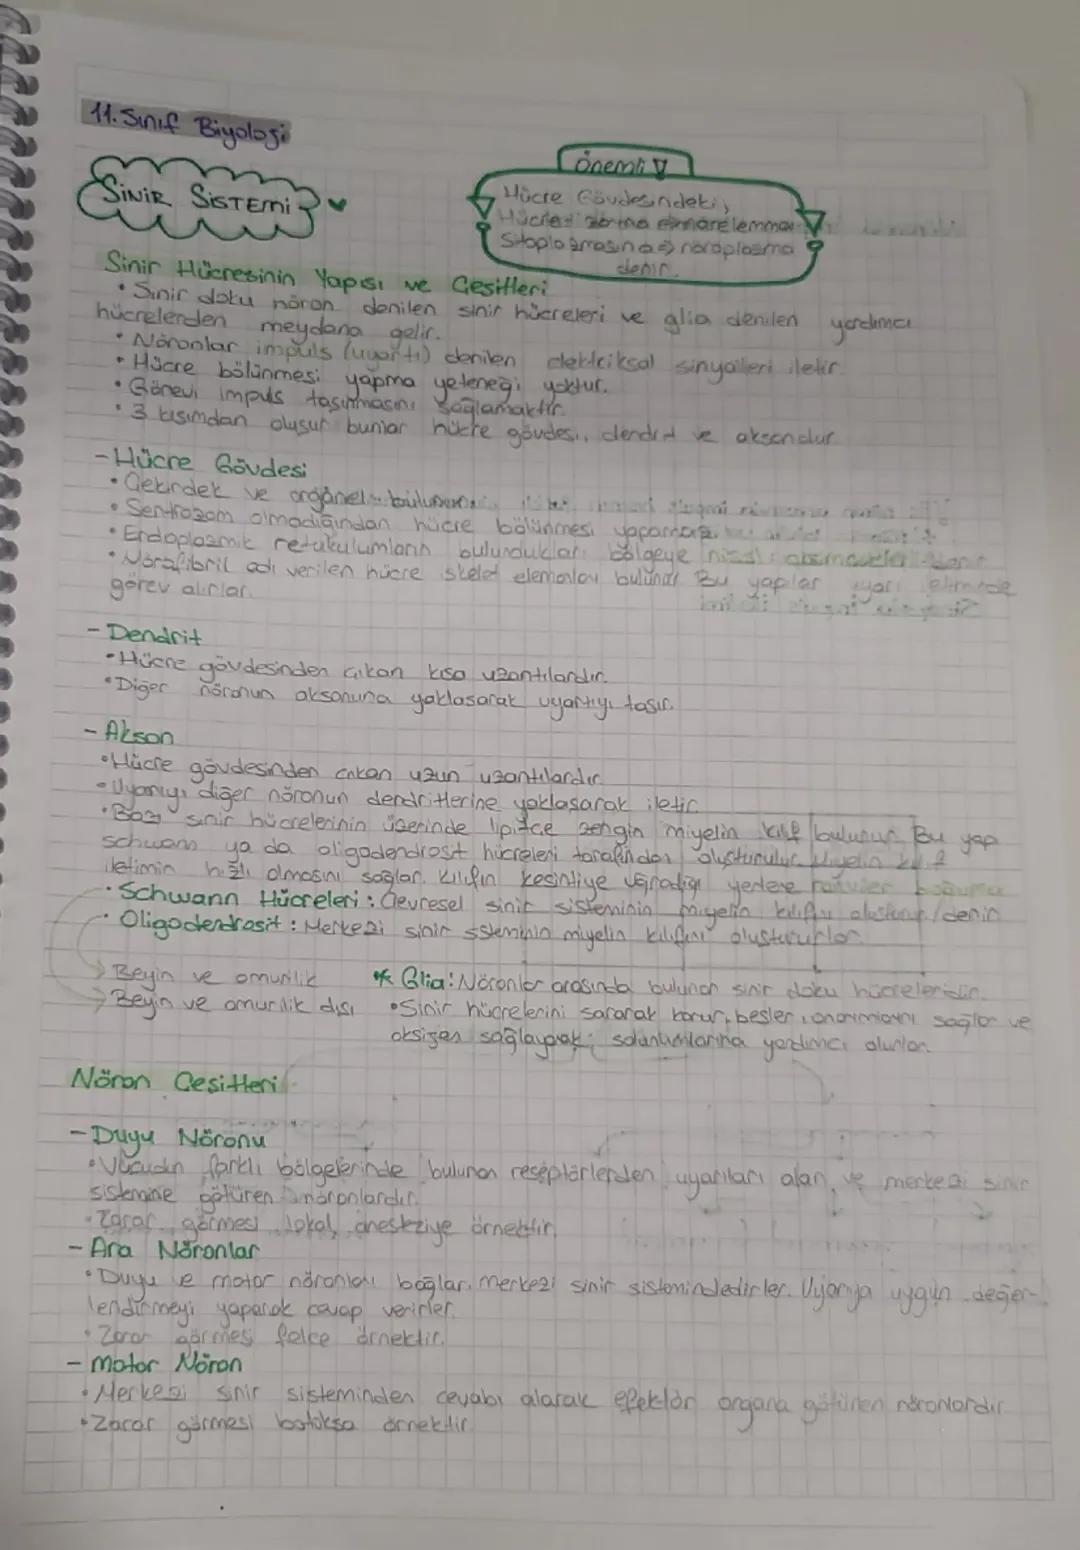 11. Sınıf Biyoloji
SİNİR SİSTEMİ
Önemli
Hücre Gövdesindeki,
Hücre zarına
Sitoplazmasına => nöroplazma
denir.
Sinir Hücresinin Yapısı ve Çeşitleri
• Sinir doku nöron denilen sinir hücreleri ve glia denilen yardımcı
hücrelerden meydana gelir.
• Nöronlar impuls (uyartı) denilen elektriksal sinyalleri iletir.
• Hücre bölünmesi yapma yeteneği yoktur.
• Görevi impuls taşınmasını sağlamaktır.
• 3 kısımdan oluşur bunlar hücre gövdesi, dendrit ve aksondur
- Hücre Gövdesi
• Çekirdek ve organel bulunur.
• Sentrozom olmadığından hücre bölünmesi yapamaz.
• Endoplazmik retukulumların bulundukları bölgeye nissl
• Nörofibril adı verilen hücre iskelet elemanları bulunur Bu yapılar uyarı iletiminde
görev alırlar.
- Dendrit
• Hücre gövdesinden çıkan kısa uzantılardır.
• Diğer nöronun aksonuna yaklaşarak uyartıyı taşır.
- Akson
• Hücre gövdesinden çıkan uzun uzantılardır
• Uyarıyı diğer nöronun dendritlerine yaklaşarak iletir
• Bazı sinir hücrelerinin üzerinde lipitçe zengin miyelin kılıf bulunur. Bu yapı
schwann ya da oligodendrosit hücreleri tarafından oluşturulur. Miyelin kılıf
iletimin hızlı olmasını sağlar. Kılıfın kesintiye uğradığı yerlere ranvier boğumu
• Schwann Hücreleri: Çevresel sinir sisteminin miyelin kılıfını oluşturur/denir
• Oligodendrosit: Merkezi sinir sisteminin miyelin kılıfını oluştururlar.
Beyin ve omurilik
Beyin ve omurilik dışı
* Glia: Nöronlar arasında bulunan sinir doku hücreleridir.
• Sinir hücrelerini sararak korur, besler, onarımlarını sağlar ve
oksijen sağlayarak solunumlarına yardımcı olurlar.
Nöron Çeşitleri
- Duyu Nöronu
• Vücudun farklı bölgelerinde bulunan reseptörlerden uyarıları alan ve merkezi sinir
sistemine götüren nöronlardır.
• Zarar görmesi lokal anesteziye örnektir.
- Ara Nöronlar
• Duyu ve motor nöronları bağlar. Merkezi sinir sistemindedirler. Uyarıya uygun değer-
lendirmeyi yaparak cevap verirler.
• Zarar görmesi felce örnektir.
- Motor Nöron
• Merkezi sinir sisteminden cevabı alarak efektör organa götüren nöronlardır.
• Zarar görmesi botoksa örnektir.